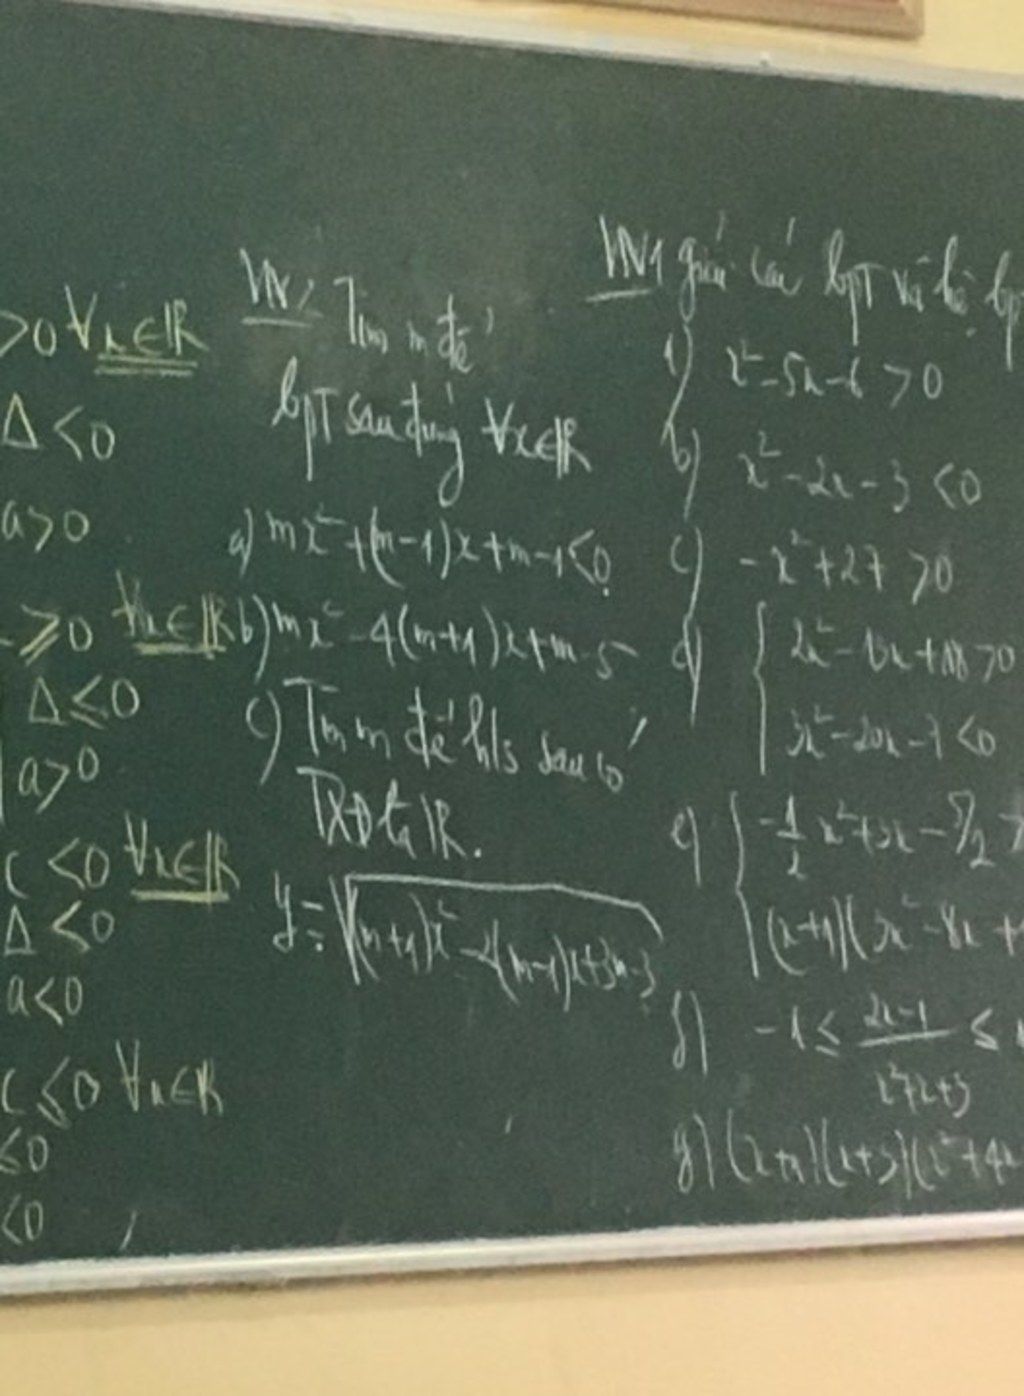 >0 ∀x∈ℝ
Δ<0
a>0
≥0 ∀x∈ℝ
Δ≤0
a>0
c <0 ∀x∈ℝ
Δ <0
a<0
c ≤0 ∀x∈ℝ
≤0
<0
VN2 Tìm m để
bpT sau đúng ∀x∈ℝ
a) mx²+(m-1)x+m-1<0
b) mx²-4(m+1)x+m-5
c) Tìm m để h/s sau có
TXĐ là ℝ.
y = √(m+1)x²-2(m-1)x+3m-3
VN1 giải các bpT và hệ bp
x²-5x-6 >0
b) x²-2x-3 <0
c) -x²+27 >0
d) 2x²-13x+18>0
3x²-20x-7<0
e) -1/2 x²+3x-5/2
(x+1)(3x²-8x+
f) -1≤ 2x-1 ≤
x²+x+3
g) (x+1)(x+3)(x²+4x